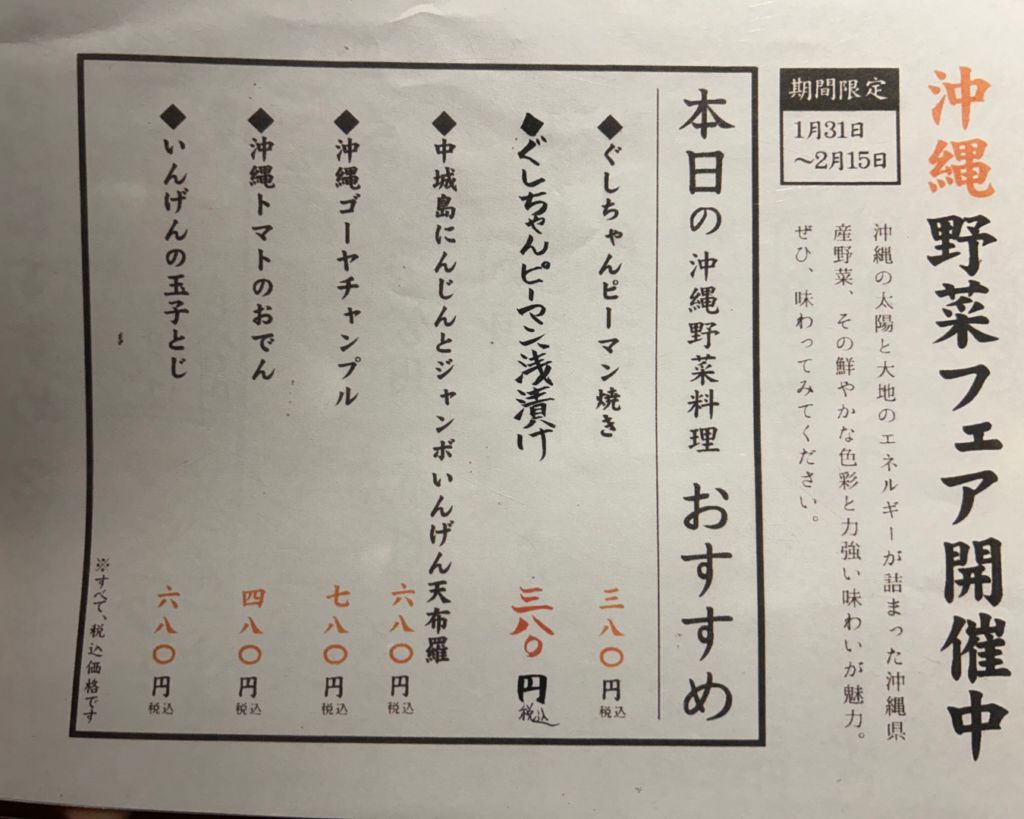 沖縄野菜フェア開催中
期間限定
1月31日
～2月15日
沖縄の太陽と大地のエネルギーが詰まった沖縄県
産野菜、その鮮やかな色彩と力強い味わいが魅力。
ぜひ、味わってみてください。
本日の沖縄野菜料理 おすすめ
◆ぐしちゃんピーマン焼き 三八〇円税込
◆ぐしちゃんピーマン浅漬け 三八〇円税込
◆中城島にんじんとジャンボいんげん天布羅 六八〇円税込
◆沖縄ゴーヤチャンプル 七八〇円税込
◆沖縄トマトのおでん 四八〇円税込
◆いんげんの玉子とじ 六八〇円税込
※すべて、税込価格です